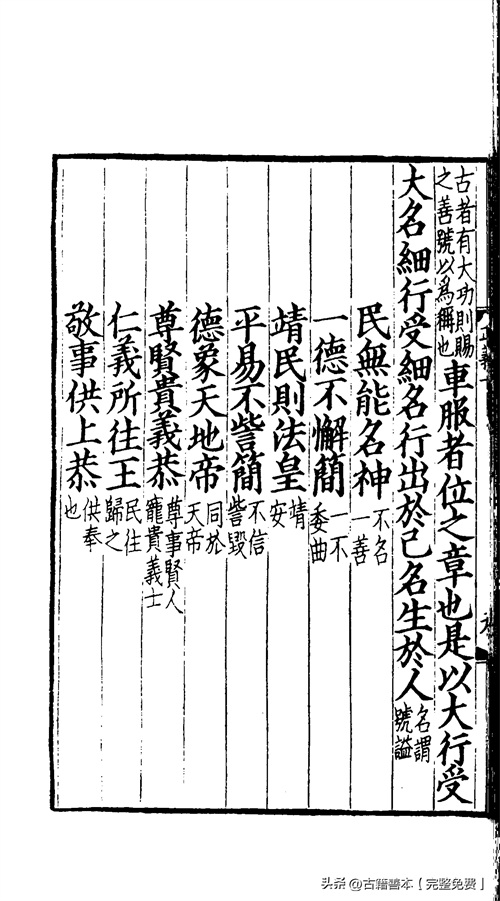 古者有大功則賜之善號以為稱也車服者位之章也是以大行受
大名細行受細名行出於己名生於人名謂號謚
民無能名神不名一善
一德不懈簡一不委曲
靖民則法皇靖安
平易不訾簡不信訾毀
德象天地帝同於天帝
尊賢貴義恭尊事賢人寵貴義士
仁義所往王民往歸之
敬事供上恭供奉也
頭条 @古籍善本【完整免费】